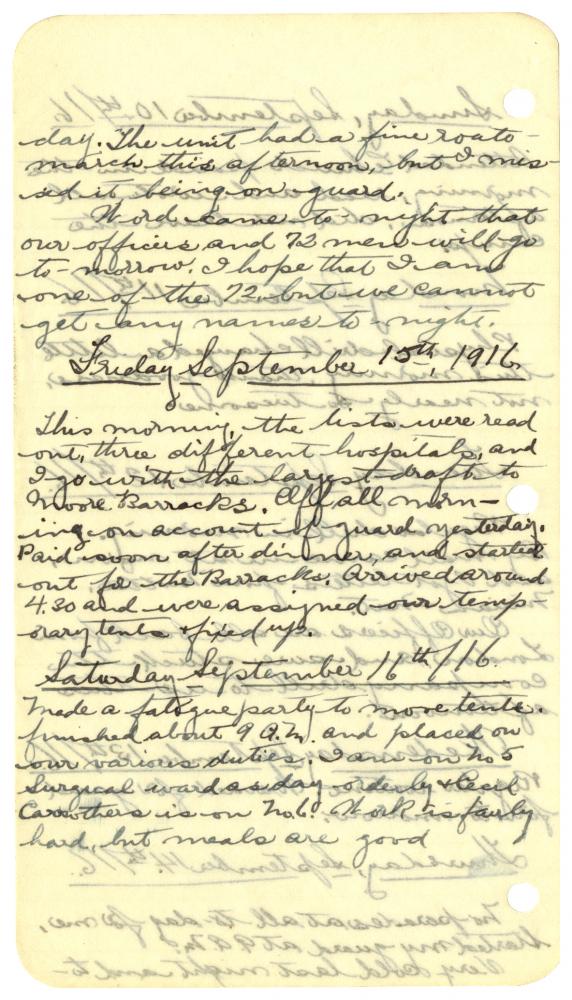 day. The unit had a fine route-
march this afternoon, but I mis-
sed it being on guard.
Word came to-night that
our officers and 72 men will go
to-morrow. I hope that I am
one of the 72, but we cannot
get any names to-night.
Friday September 15th, 1916.
This morning, the lists were read
out, three different hospitals, and
I go with the largest draft to
Moore Barracks. Off all morn-
ing on account of guard yesterday.
Paid soon after dinner, and started
out for the Barracks. Arrived around
4.30 and were assigned our temp-
orary tents & fixed up.
Saturday September 16th/16.
Made a fatigue party to move tents.
finished about 9 A.M. and placed on
our various duties. I am on No 5
Surgical ward as day orderly & Cecil
Carrothers is on No. 6. Work is fairly
hard, but meals are good